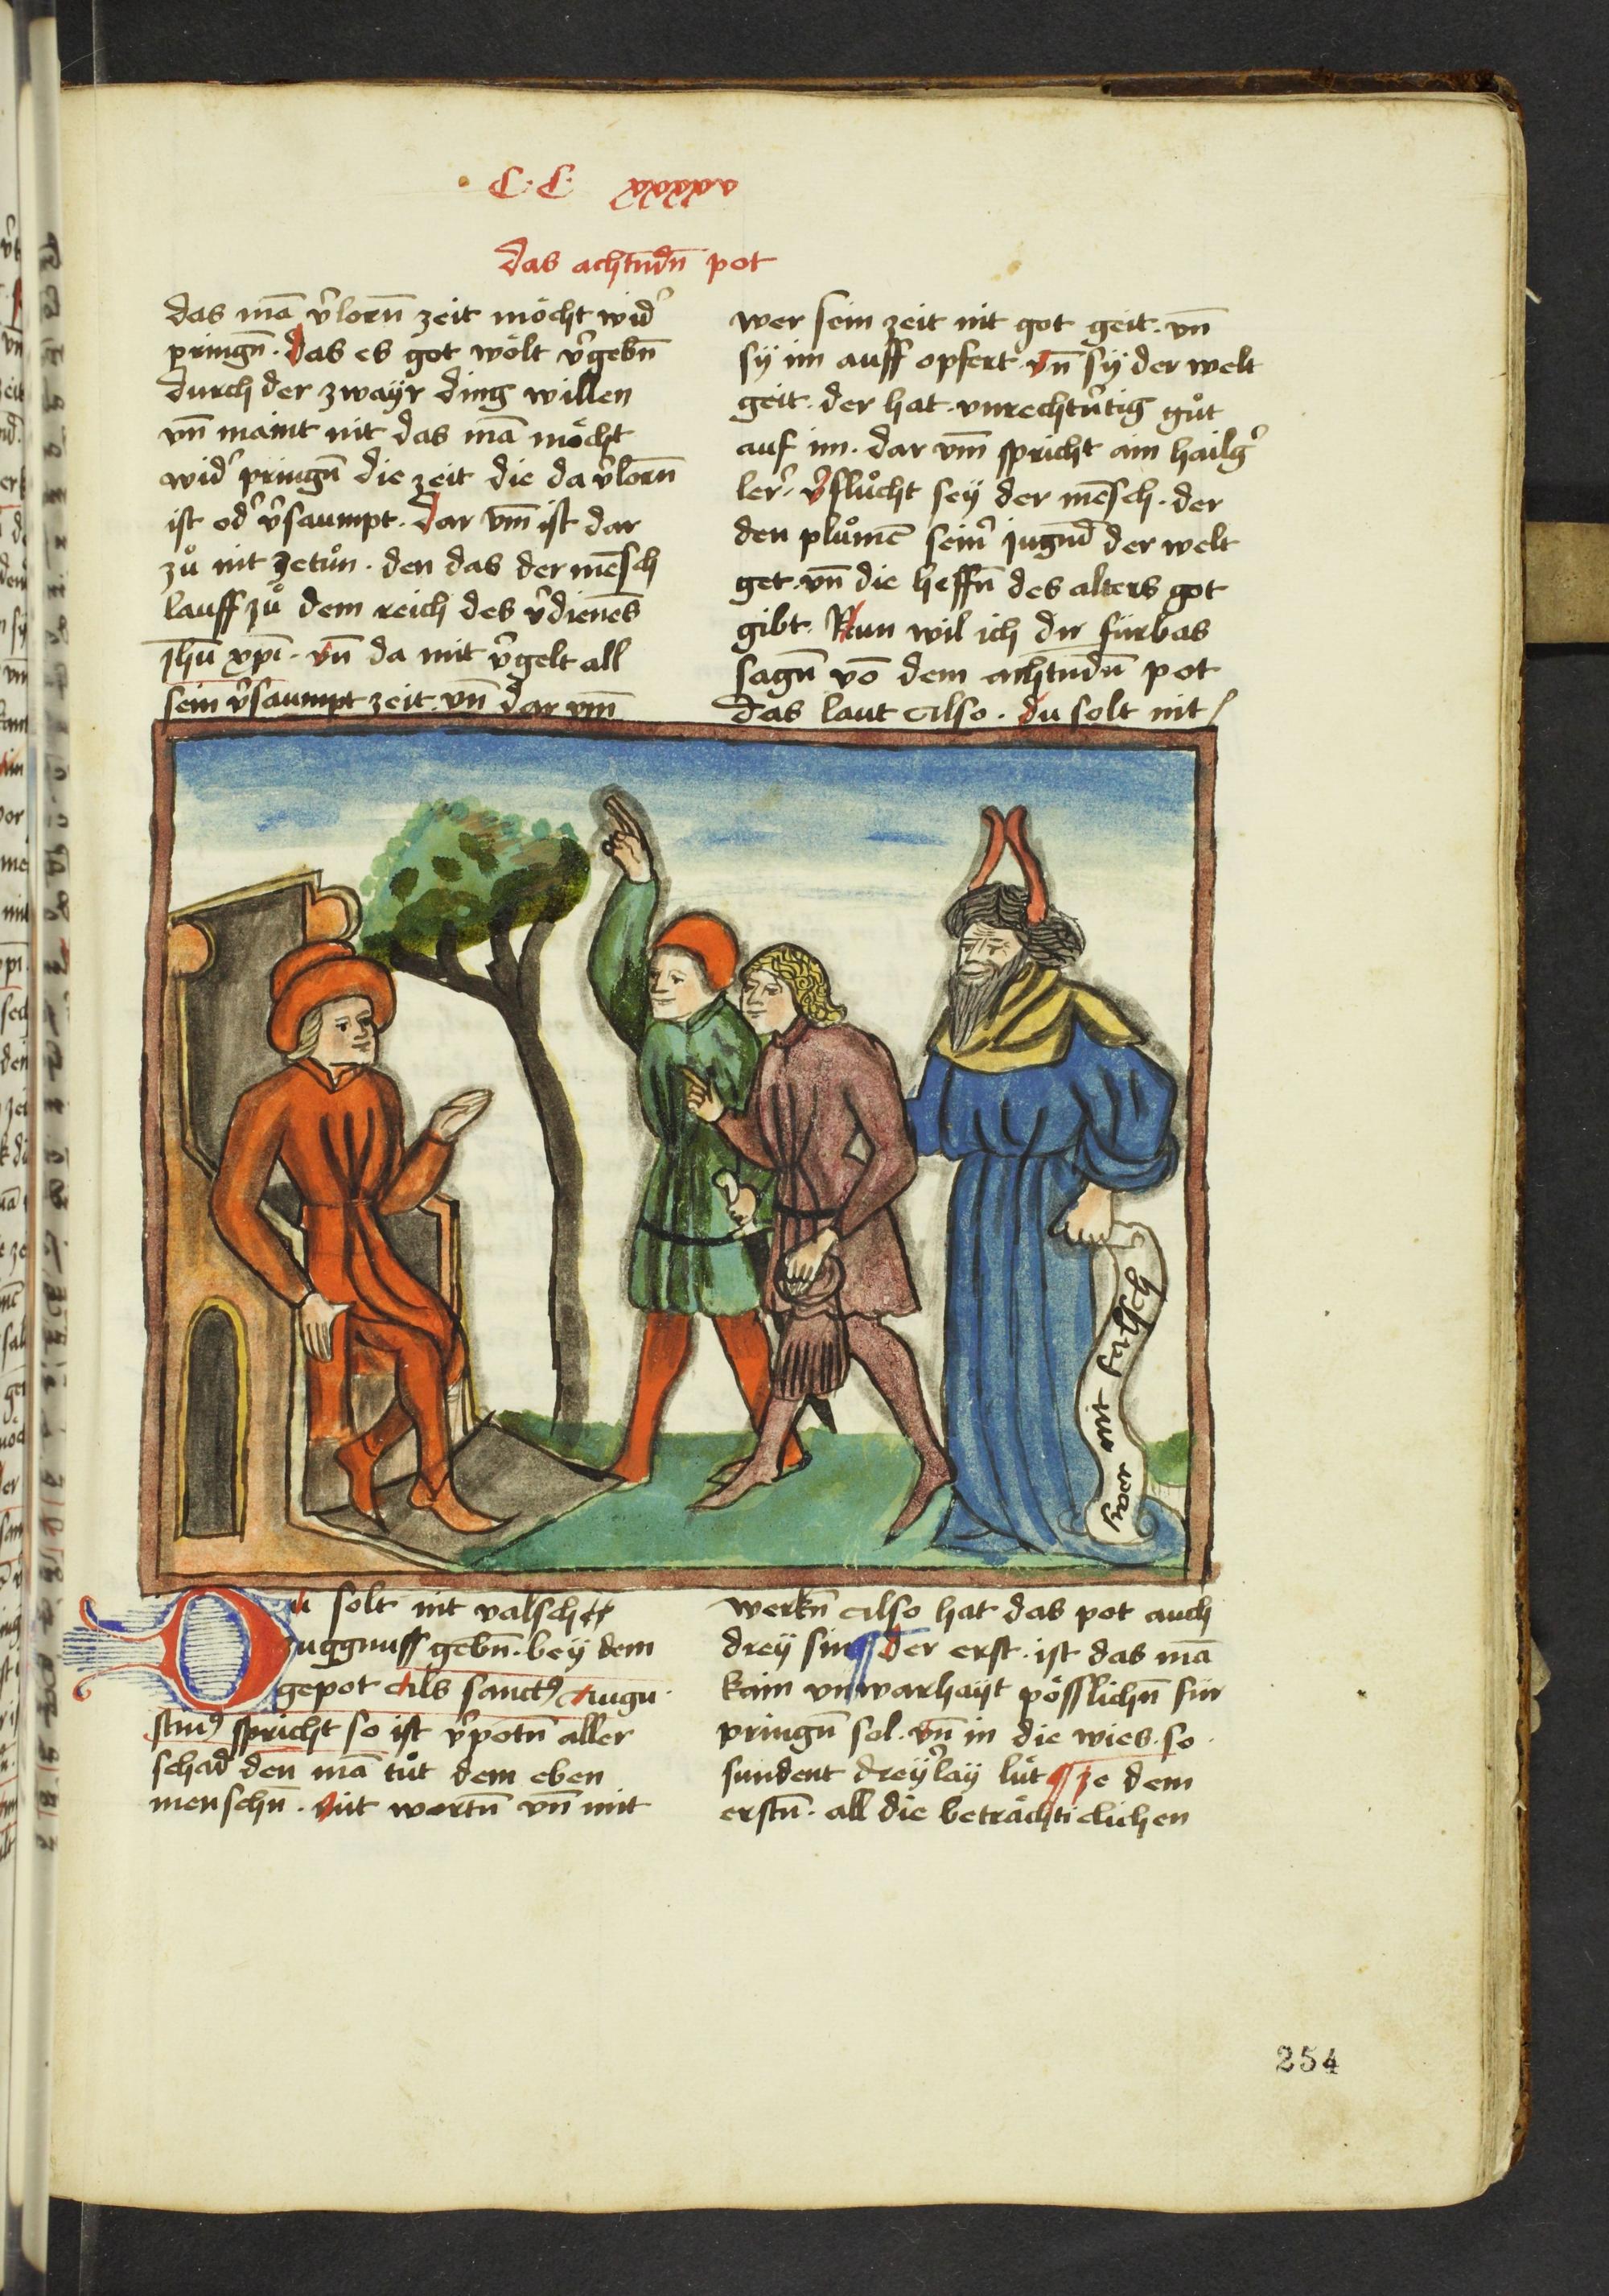 C·C· xxxxv
das achtundn̄ pot
das mā v̓lorn̄ zeit möcht wid̓
pringn̄. das es got wölt v̓gebn̄
durch der zwaÿr ding willen
vn̄ maint nit das mā möcht
wid̓ pringn̄ die zeit die da v̓lorn̄
ist od̓ v̓saumpt. dar vm̄ ist dar
zů nit zetůn. den das der mēsch
lauff zů dem reich des v̓dienēs
jhū xp̄i. vn̄ da mit v̓gelt all
sein v̓saumpt zeit. vn̄ dar vm̄
wer sein zeit nit got geit. vn̄
sÿ im auff opfert. vn̄ sÿ der welt
geit. der hat. vnrechtv̓tig gůt
auf im. dar vm̄ spricht ain hailg̓
ler̓. v̓flůcht seÿ der mēsch. der
den plůmē sein̓ jugn̄d der welt
get. vn̄ die heffn̄ des alters got
gibt. Nun wil ich dir fürbas
sagn̄ vō dem achtundn̄ pot
das laut also. du solt nit
hoffart nit way
Du solt nit valsch
zuggnuss gebn̄. beÿ dem
gepot Als sanctꝰ Augu
stinꝰ spricht so ist v̓potn̄ aller
schad den mā tůt dem eben
menschn̄. Mit wortn̄ vn̄ mit
werkn̄ Also hat das pot auch
dreÿ sin ¶ der erst. ist das mā
kain vnwarhaÿt pösslichn̄ für
pringn̄ sol. vn̄ in die wies. so
sundent dreÿ̓laÿ lüt ¶ ze dem
erstn̄. all die beträchticlichen
254